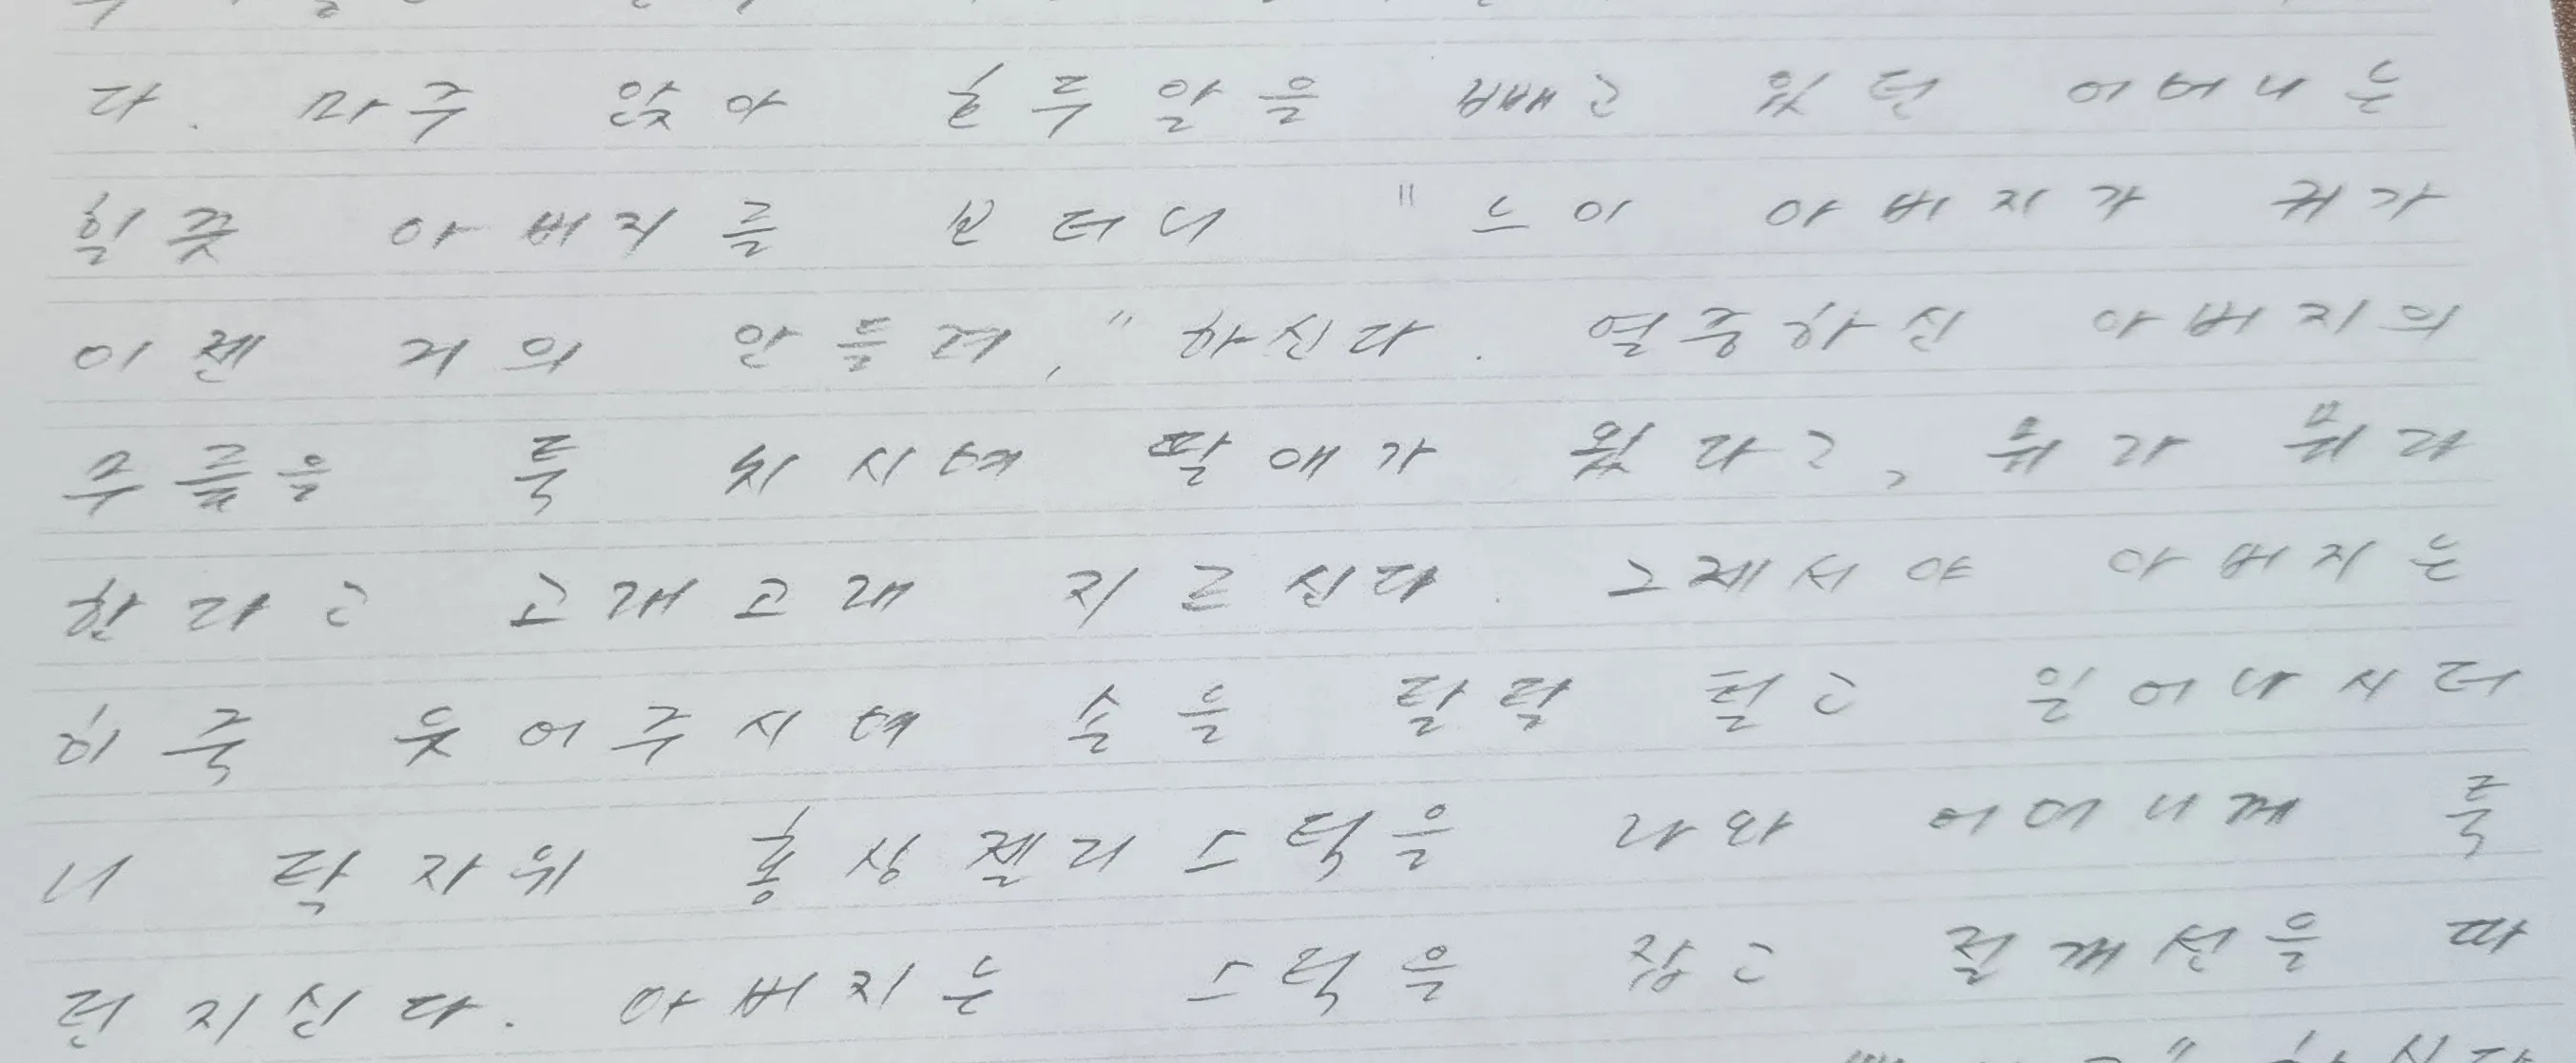 다. 마주 앉아 화투알을 빼고 있던 어머니는
힐끗 아버지를 보더니 "느이 아버지가 귀가
이젠 거의 안들려," 하신다. 열중하신 아버지의
무릎을 툭 치시며 딸애가 왔다고, 뭐라 뭐라
한다고 고래고래 지르신다. 그제서야 아버지는
히죽 웃어주시며 손을 탈탁 털고 일어나시더
니 탁자위 홍삼젤리스틱을 나와 어머니께 툭
던지신다. 아버지는 스틱을 잡고 절개선을 따